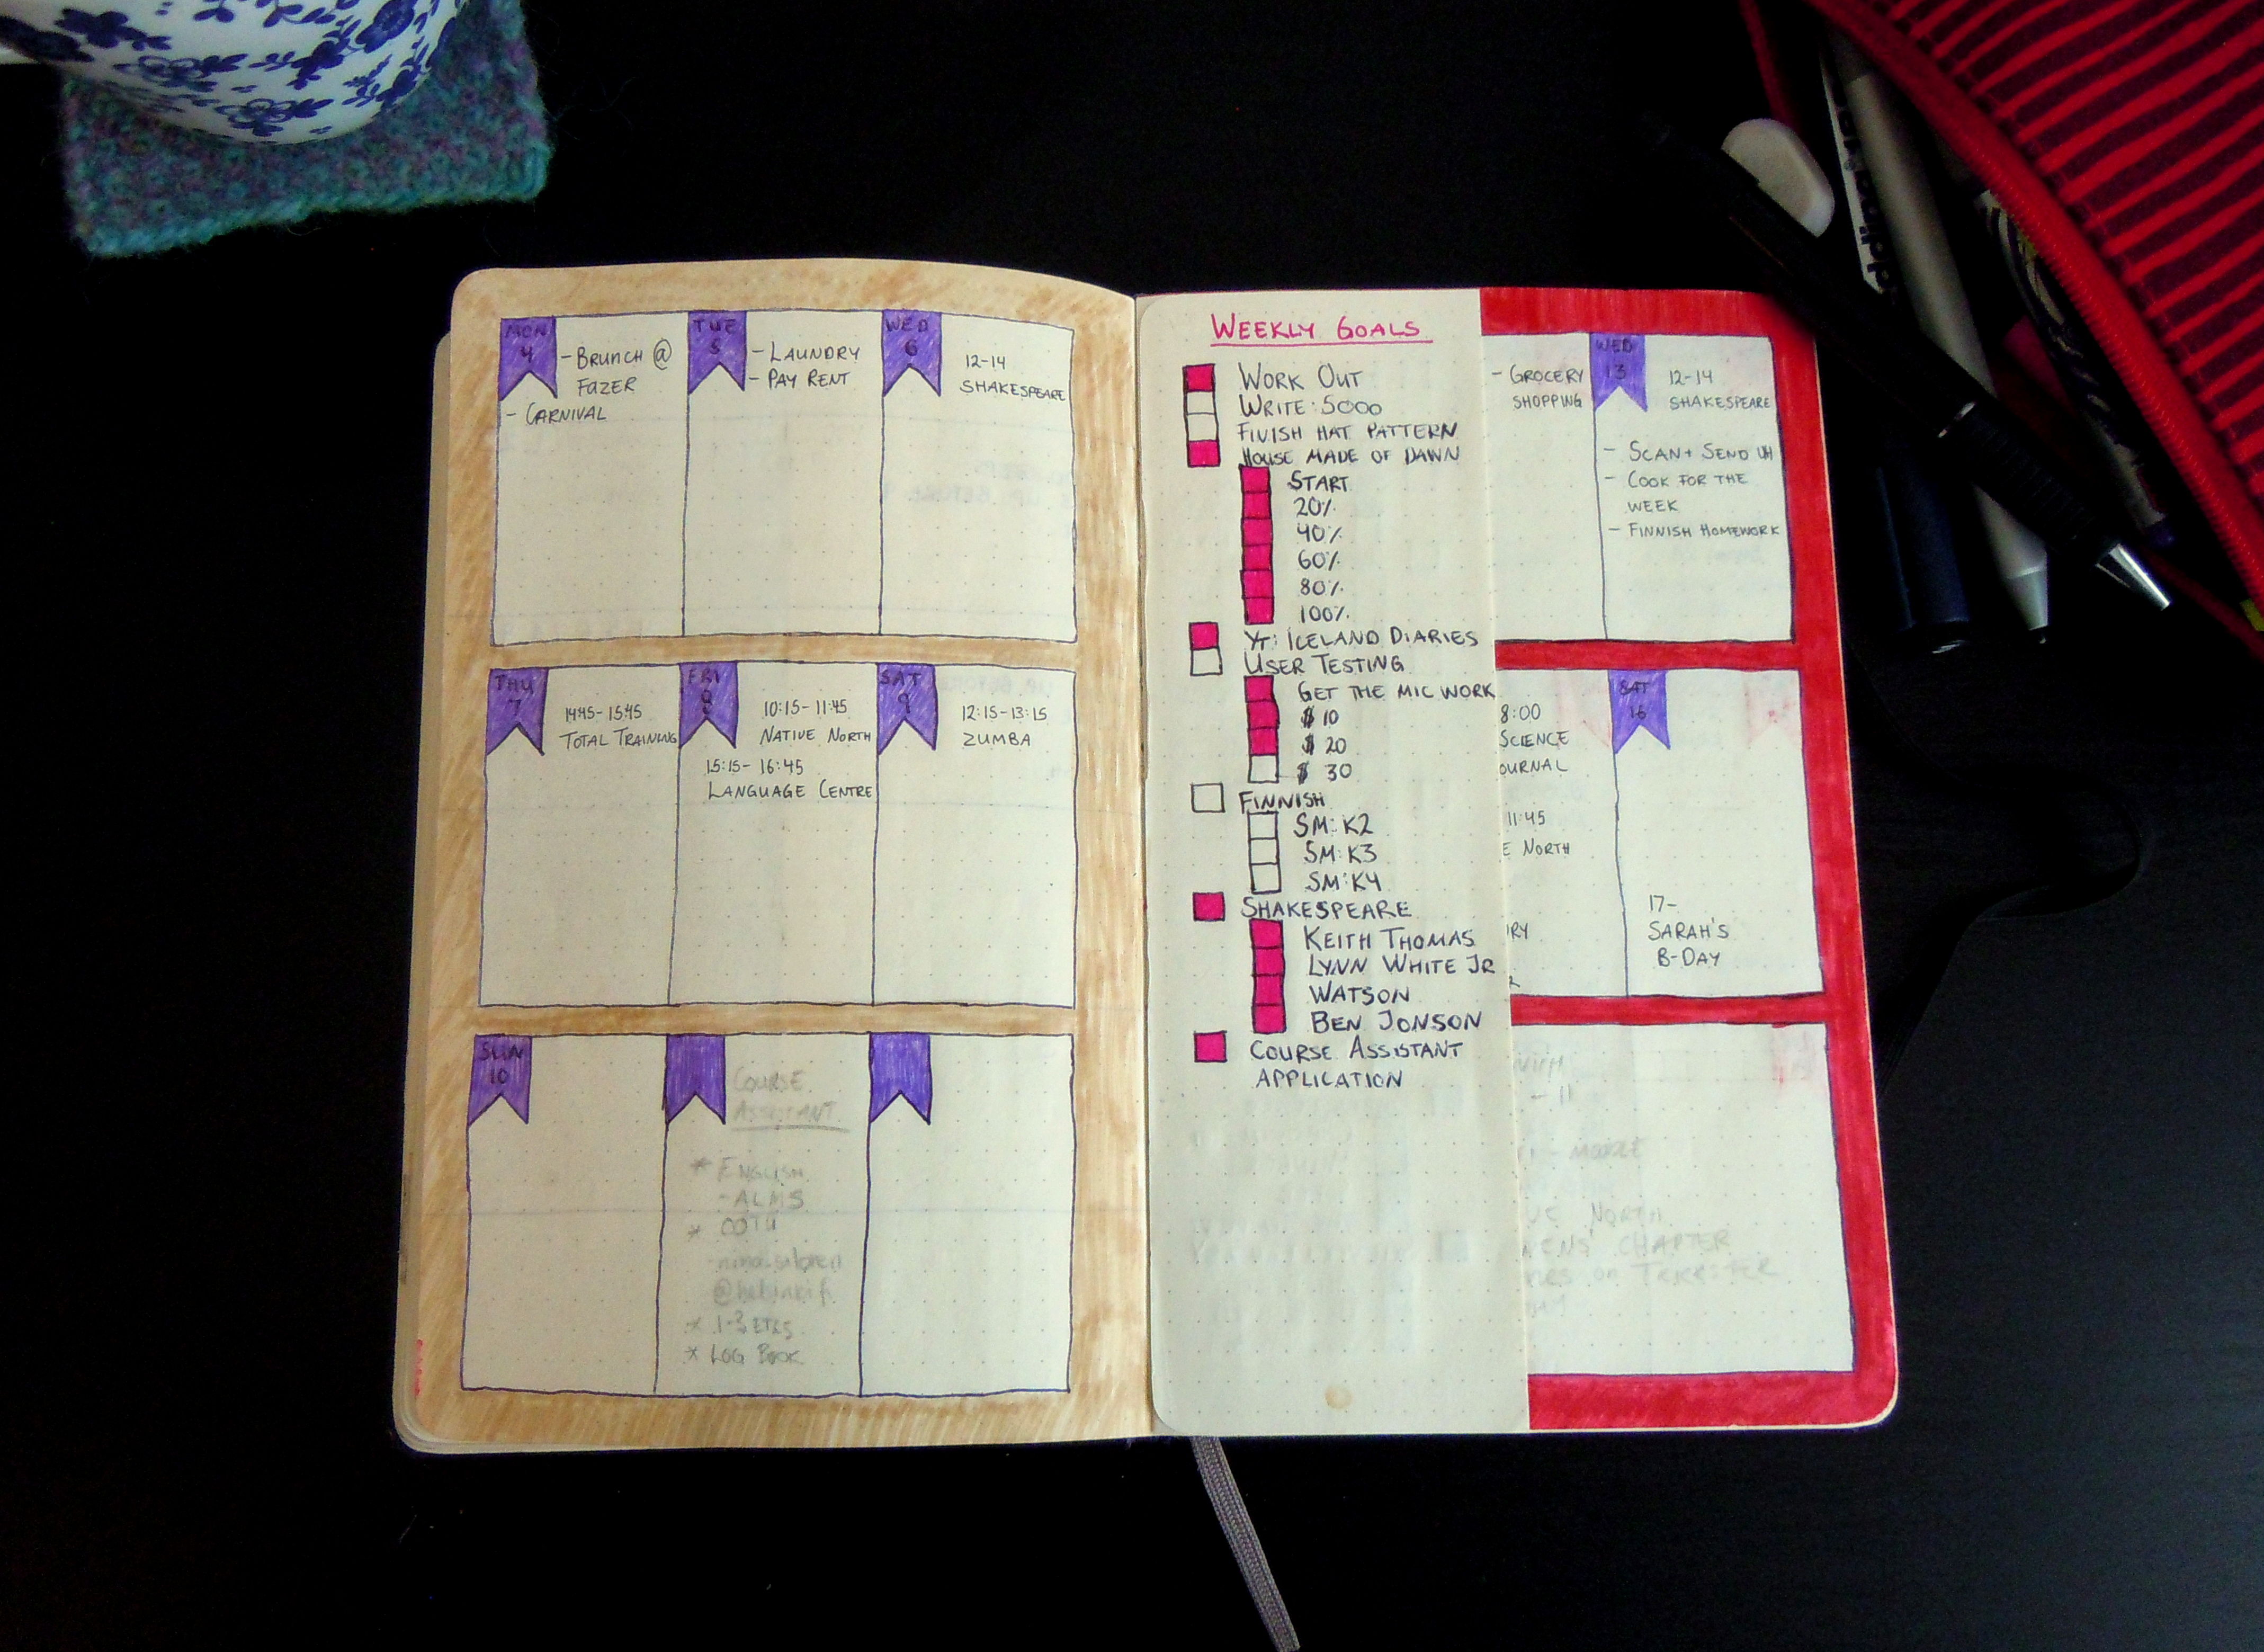 MON
4
- BRUNCH @
FAZER
- CARNIVAL
TUE
5
- LAUNDRY
- PAY RENT
WED
6
12-14
SHAKESPEARE
THU
7
14:45-15:45
TOTAL TRAINING
FRI
8
10:15-11:45
NATIVE NORTH
15:15-16:45
LANGUAGE CENTRE
SAT
9
12:15-13:15
ZUMBA
SUN
10
COURSE
ASSISTANT
* ENGLISH
- ALMS
*
@helsinki.fi
* 1-3 ETCS
* LOG BOOK
WEEKLY GOALS
WORK OUT
WRITE: 5000
FINISH HAT PATTERN
HOUSE MADE OF DAWN
START
20%
40%
60%
80%
100%
YT: ICELAND DIARIES
USER TESTING
GET THE MIC WORK
$ 10
$ 20
$ 30
FINNISH
SM: K2
SM: K3
SM: K4
SHAKESPEARE
KEITH THOMAS
LYNN WHITE JR
WATSON
BEN JONSON
COURSE ASSISTANT
APPLICATION
- GROCERY
SHOPPING
WED
13
12-14
SHAKESPEARE
- SCAN + SEND UH
- COOK FOR THE
WEEK
- FINNISH HOMEWORK
8:00
SCIENCE
OURNAL
11:45
E NORTH
RY
SAT
16
17-
SARAH'S
B-DAY
- 11
NORTH
CHAPTER
ON TRICKSTER